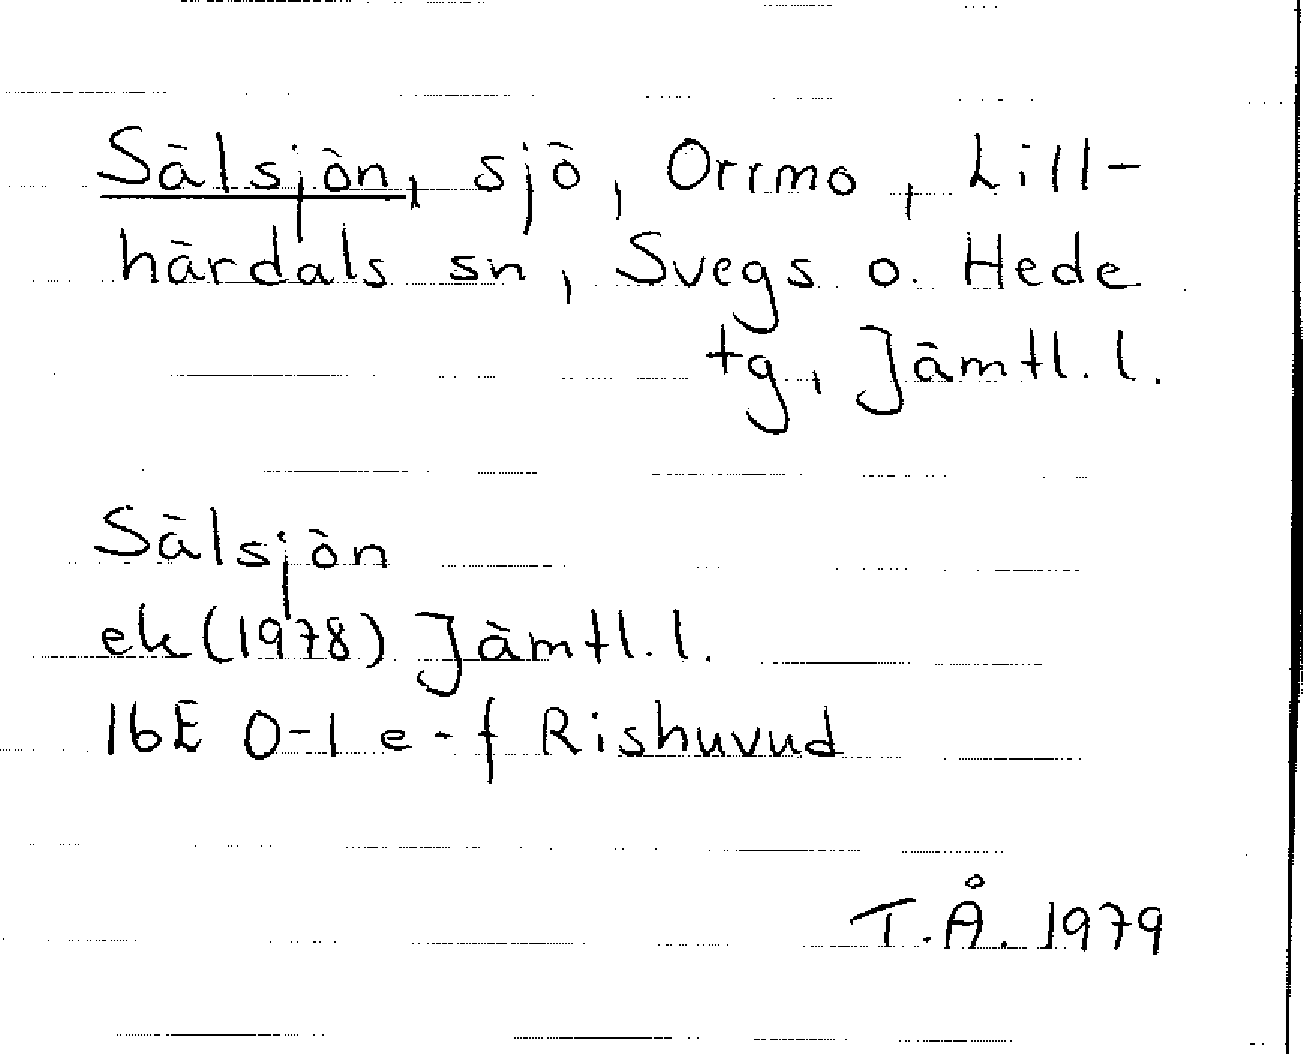 Sälsjön, sjö, Orrmo, Lill-
härdals sn, Svegs o. Hede
tg, Jämtl. l.
Sälsjön
ek (1978) Jämtl. l.
16E 0-1 e-f Rishuvud
T.Å. 1979